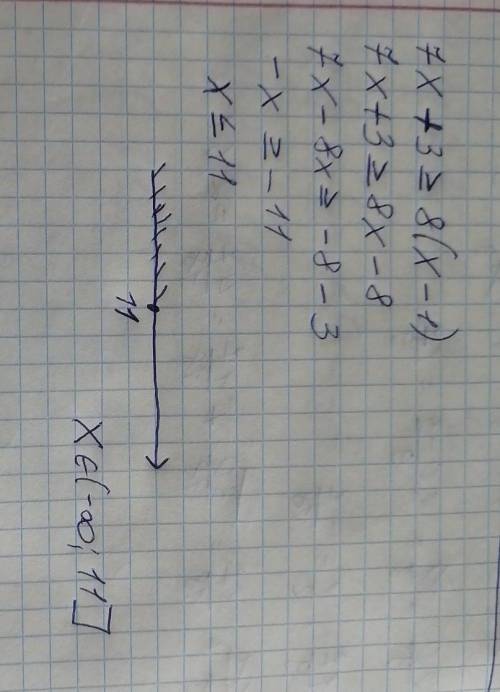 7x + 3 ≥ 8(x - 1)
7x + 3 ≥ 8x - 8
7x - 8x ≥ -8 - 3
-x ≥ -11
x ≤ 11
11
x ∈ (-∞; 11]